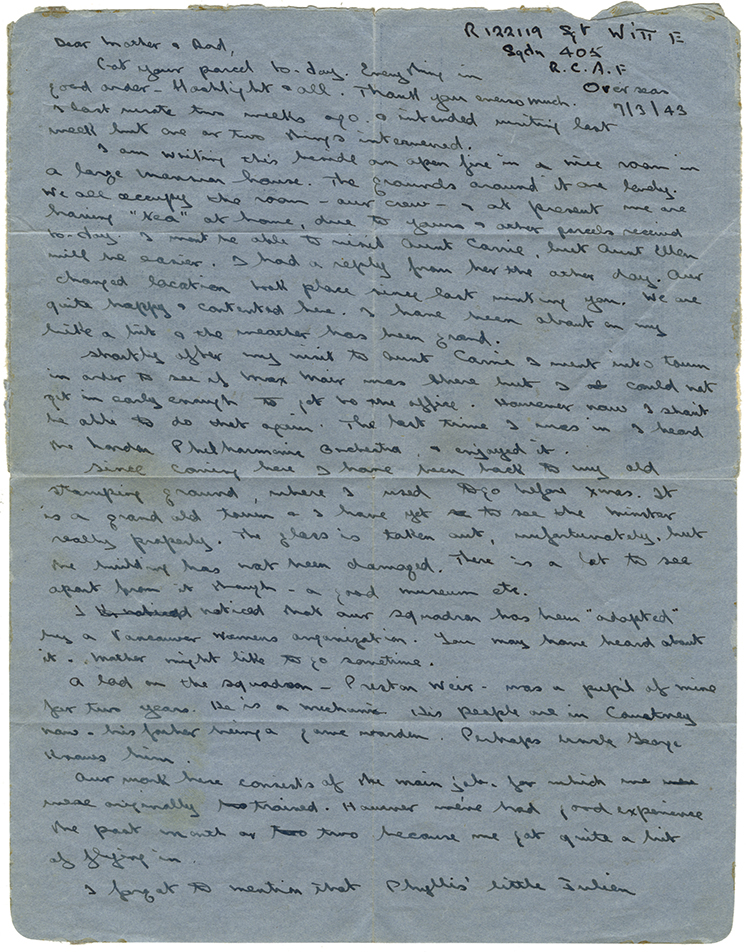 R122119 Sgt Witt E
Sqdn 405
R.C.A.F
Overseas
7/3/43
Dear Mother & Dad,
Got your parcel to-day. Everything in
good order - flashlight & all. Thank you ever so much.
I last wrote two weeks ago & intended writing last
week but one or two things intervened.
I am writing this beside an open fire in a nice room in
a large mansion house. The grounds around it are lovely.
We all occupy the room - our crew - & at present we are
having "tea" at home, due to yours & other parcels received
to-day. I wont be able to visit Aunt Carrie, but Aunt Ellen
will be easier. I had a reply from her the other day. Our
changed location took place since last writing you. We are
quite happy & contented here. I have been about on my
bike a bit & the weather has been grand.
Shortly after my visit to Aunt Carrie I went into town
in order to see if Max Muir was there but I could not
get in early enough to get to the office. However now I shant
be able to do that again. The last time I was in I heard
the London Philharmonic Orchestra & enjoyed it.
Since coming here I have been back to my old
stamping ground, where I used to go before Xmas. It
is a grand old town & I have yet to see the minster
really properly. The glass is taken out, unfortunately, but
the building has not been damaged. There is a lot to see
apart from it though - a good museum etc.
I noticed that our squadron has been "adopted"
by a Vancouver womens organization. You may have heard about
it. Mother might like to go sometime.
A lad on the squadron - Preston Weir - was a pupil of mine
for two years. He is a mechanic. His people are in Courtney
now - his father being a game warden. Perhaps Uncle George
knows him.
Our work here consists of the main job for which we
were originally trained. However we've had good experience
the past month or two because we got quite a bit
of flying in.
I forgot to mention that Phyllis' little Julien